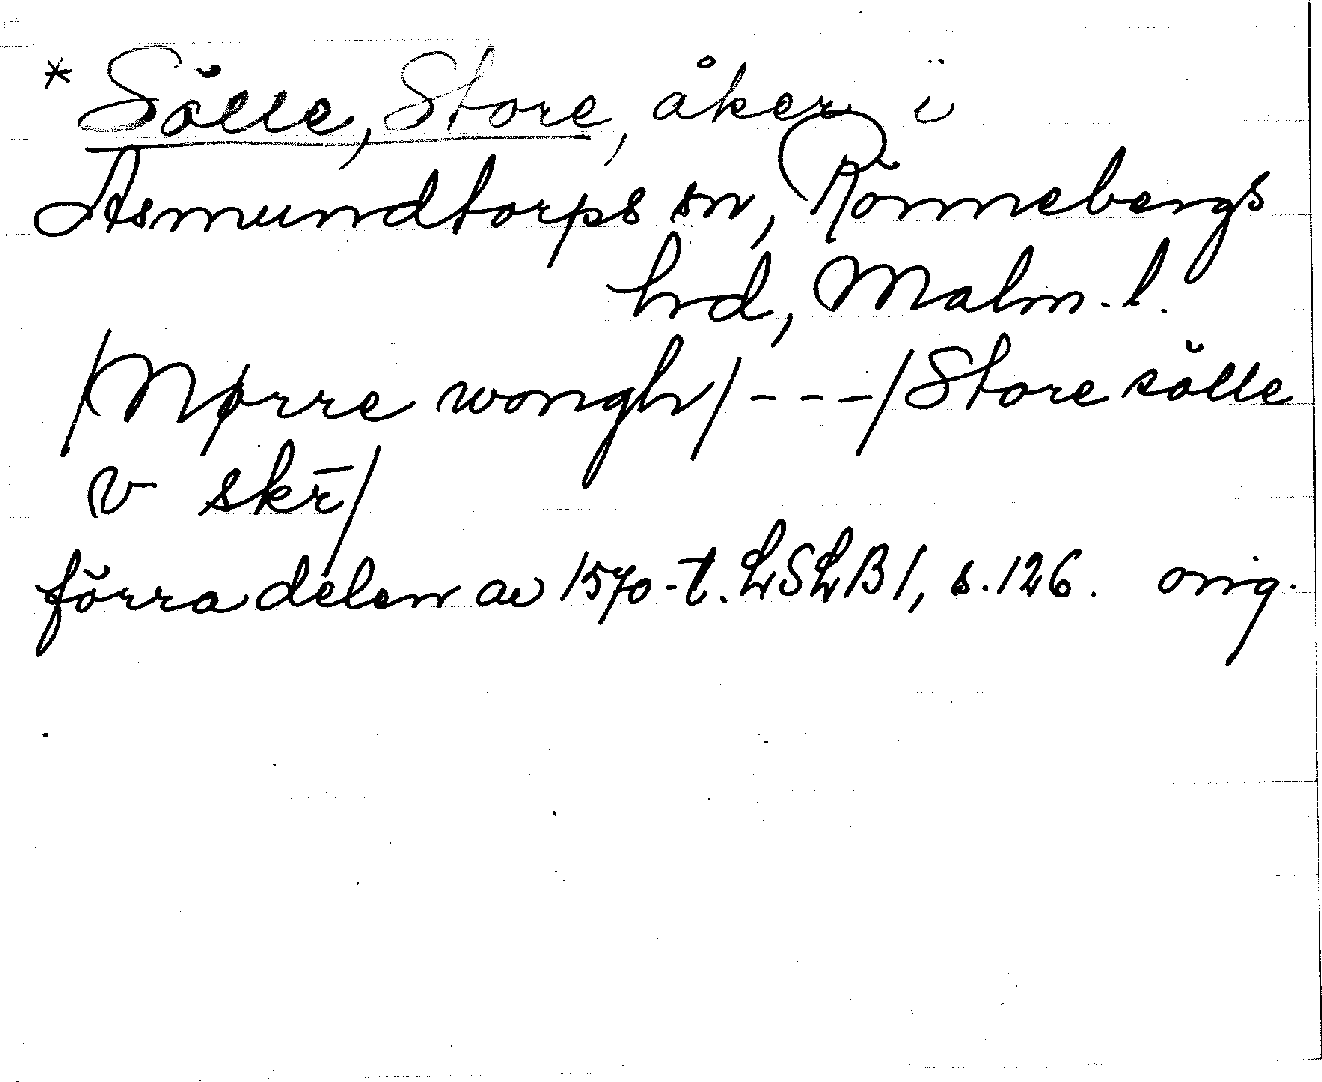 * Sölle, Store, åker i
Asmundtorps sn, Rönnebergs
hrd, Malm. l.
/Nørre wongh/ - - - /Store sölle
v skr̄/
förra delen av 1570-t. LSLB1, s. 126. orig.